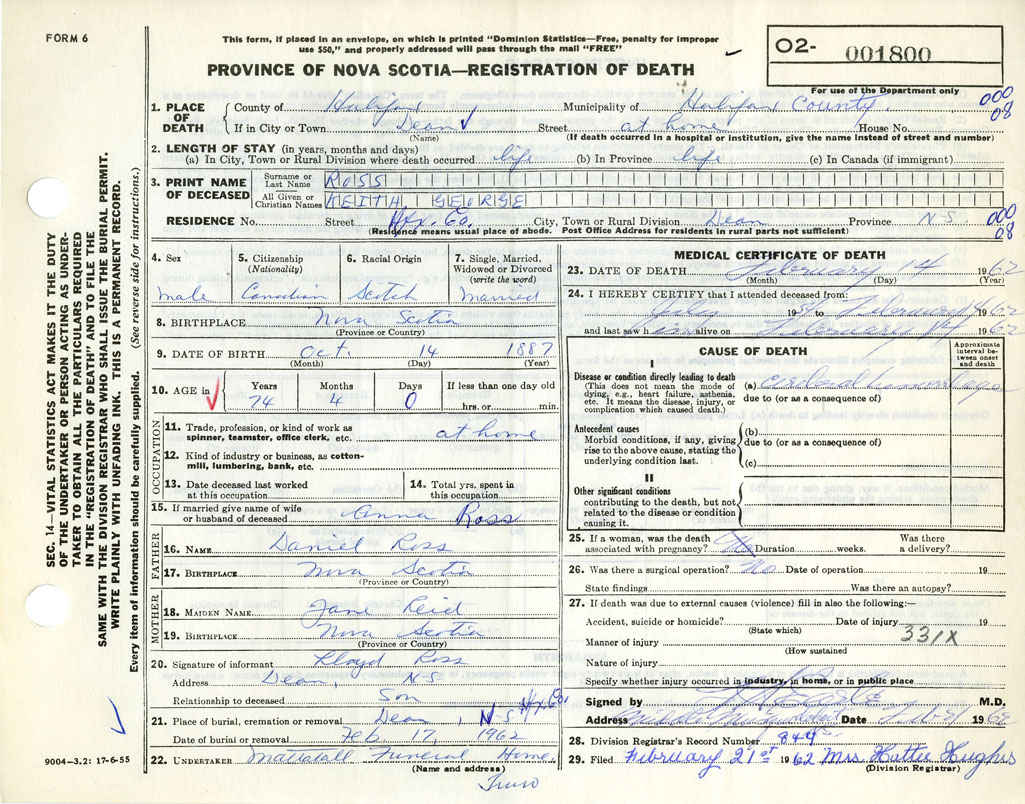 FORM 6
This form, if placed in an envelope, on which is printed "Dominion Statistics—Free, penalty for improper
use $50," and properly addressed will pass through the mail "FREE"
O2- 001800
PROVINCE OF NOVA SCOTIA—REGISTRATION OF DEATH
For use of the Department only
1. PLACE OF DEATH County of Halifax Municipality of Halifax County 000
If in City or Town Dean Street at home House No. 08
(Name) (If death occurred in a hospital or institution, give the name instead of street and number)
2. LENGTH OF STAY (in years, months and days)
(a) In City, Town or Rural Division where death occurred life (b) In Province life (c) In Canada (if immigrant)
3. PRINT NAME OF DECEASED Surname or Last Name ROSS
All Given or Christian Names KEITH GEORGE
RESIDENCE No. Street Hfx. Co. City, Town or Rural Division Dean Province N.S. 000
(Residence means usual place of abode. Post Office Address for residents in rural parts not sufficient) 08
4. Sex male
5. Citizenship (Nationality) Canadian
6. Racial Origin Scotch
7. Single, Married, Widowed or Divorced (write the word) Married
8. BIRTHPLACE Nova Scotia
(Province or Country)
9. DATE OF BIRTH Oct. 14 1887
(Month) (Day) (Year)
10. AGE in Years Months Days If less than one day old
74 4 0 hrs. or min.
OCCUPATION
11. Trade, profession, or kind of work as spinner, teamster, office clerk, etc. at home
12. Kind of industry or business, as cotton-mill, lumbering, bank, etc.
13. Date deceased last worked at this occupation
14. Total yrs. spent in this occupation
15. If married give name of wife or husband of deceased Anna Ross
FATHER
16. NAME Daniel Ross
17. BIRTHPLACE Nova Scotia
(Province or Country)
MOTHER
18. MAIDEN NAME Jane Reid
19. BIRTHPLACE Nova Scotia
(Province or Country)
20. Signature of informant Lloyd Ross
Address Dean, N-S
Relationship to deceased Son
21. Place of burial, cremation or removal Dean, N S Hfx Co.
Date of burial or removal Feb 17, 1962
22. UNDERTAKER Mattatall Funeral Home,
(Name and address)
Truro
MEDICAL CERTIFICATE OF DEATH
23. DATE OF DEATH February 14 1962
(Month) (Day) (Year)
24. I HEREBY CERTIFY that I attended deceased from:
July 19 to February 14 1962
and last saw him alive on February 14 1962
CAUSE OF DEATH
Approximate interval between onset and death
I
Disease or condition directly leading to death
(This does not mean the mode of dying, e.g., heart failure, asthenia, etc. It means the disease, injury, or complication which caused death.)
(a) cerebral hemorrhage
due to (or as a consequence of)
Antecedent causes
Morbid conditions, if any, giving rise to the above cause, stating the underlying condition last.
(b)
due to (or as a consequence of)
(c)
II
Other significant conditions
contributing to the death, but not related to the disease or condition causing it.
25. If a woman, was the death associated with pregnancy? No Duration weeks. Was there a delivery?
26. Was there a surgical operation? No Date of operation 19
State findings Was there an autopsy?
27. If death was due to external causes (violence) fill in also the following:—
Accident, suicide or homicide? Date of injury 19
(State which)
331X
Manner of injury
(How sustained
Nature of injury
Specify whether injury occurred in industry, in home, or in public place
Signed by M.D.
Address Middle Musquodoboit Date 1962
28. Division Registrar's Record Number 844
29. Filed February 21st 1962 Mrs. Hattie Hughes
(Division Registrar)
SEC. 14—VITAL STATISTICS ACT MAKES IT THE DUTY
OF THE UNDERTAKER OR PERSON ACTING AS UNDER-
TAKER TO OBTAIN ALL THE PARTICULARS REQUIRED
IN THE "REGISTRATION OF DEATH" AND TO FILE THE
SAME WITH THE DIVISION REGISTRAR WHO SHALL ISSUE THE BURIAL PERMIT.
WRITE PLAINLY WITH UNFADING INK. THIS IS A PERMANENT RECORD.
Every item of information should be carefully supplied. (See reverse side for instructions.)
9004—3.2: 17-6-55